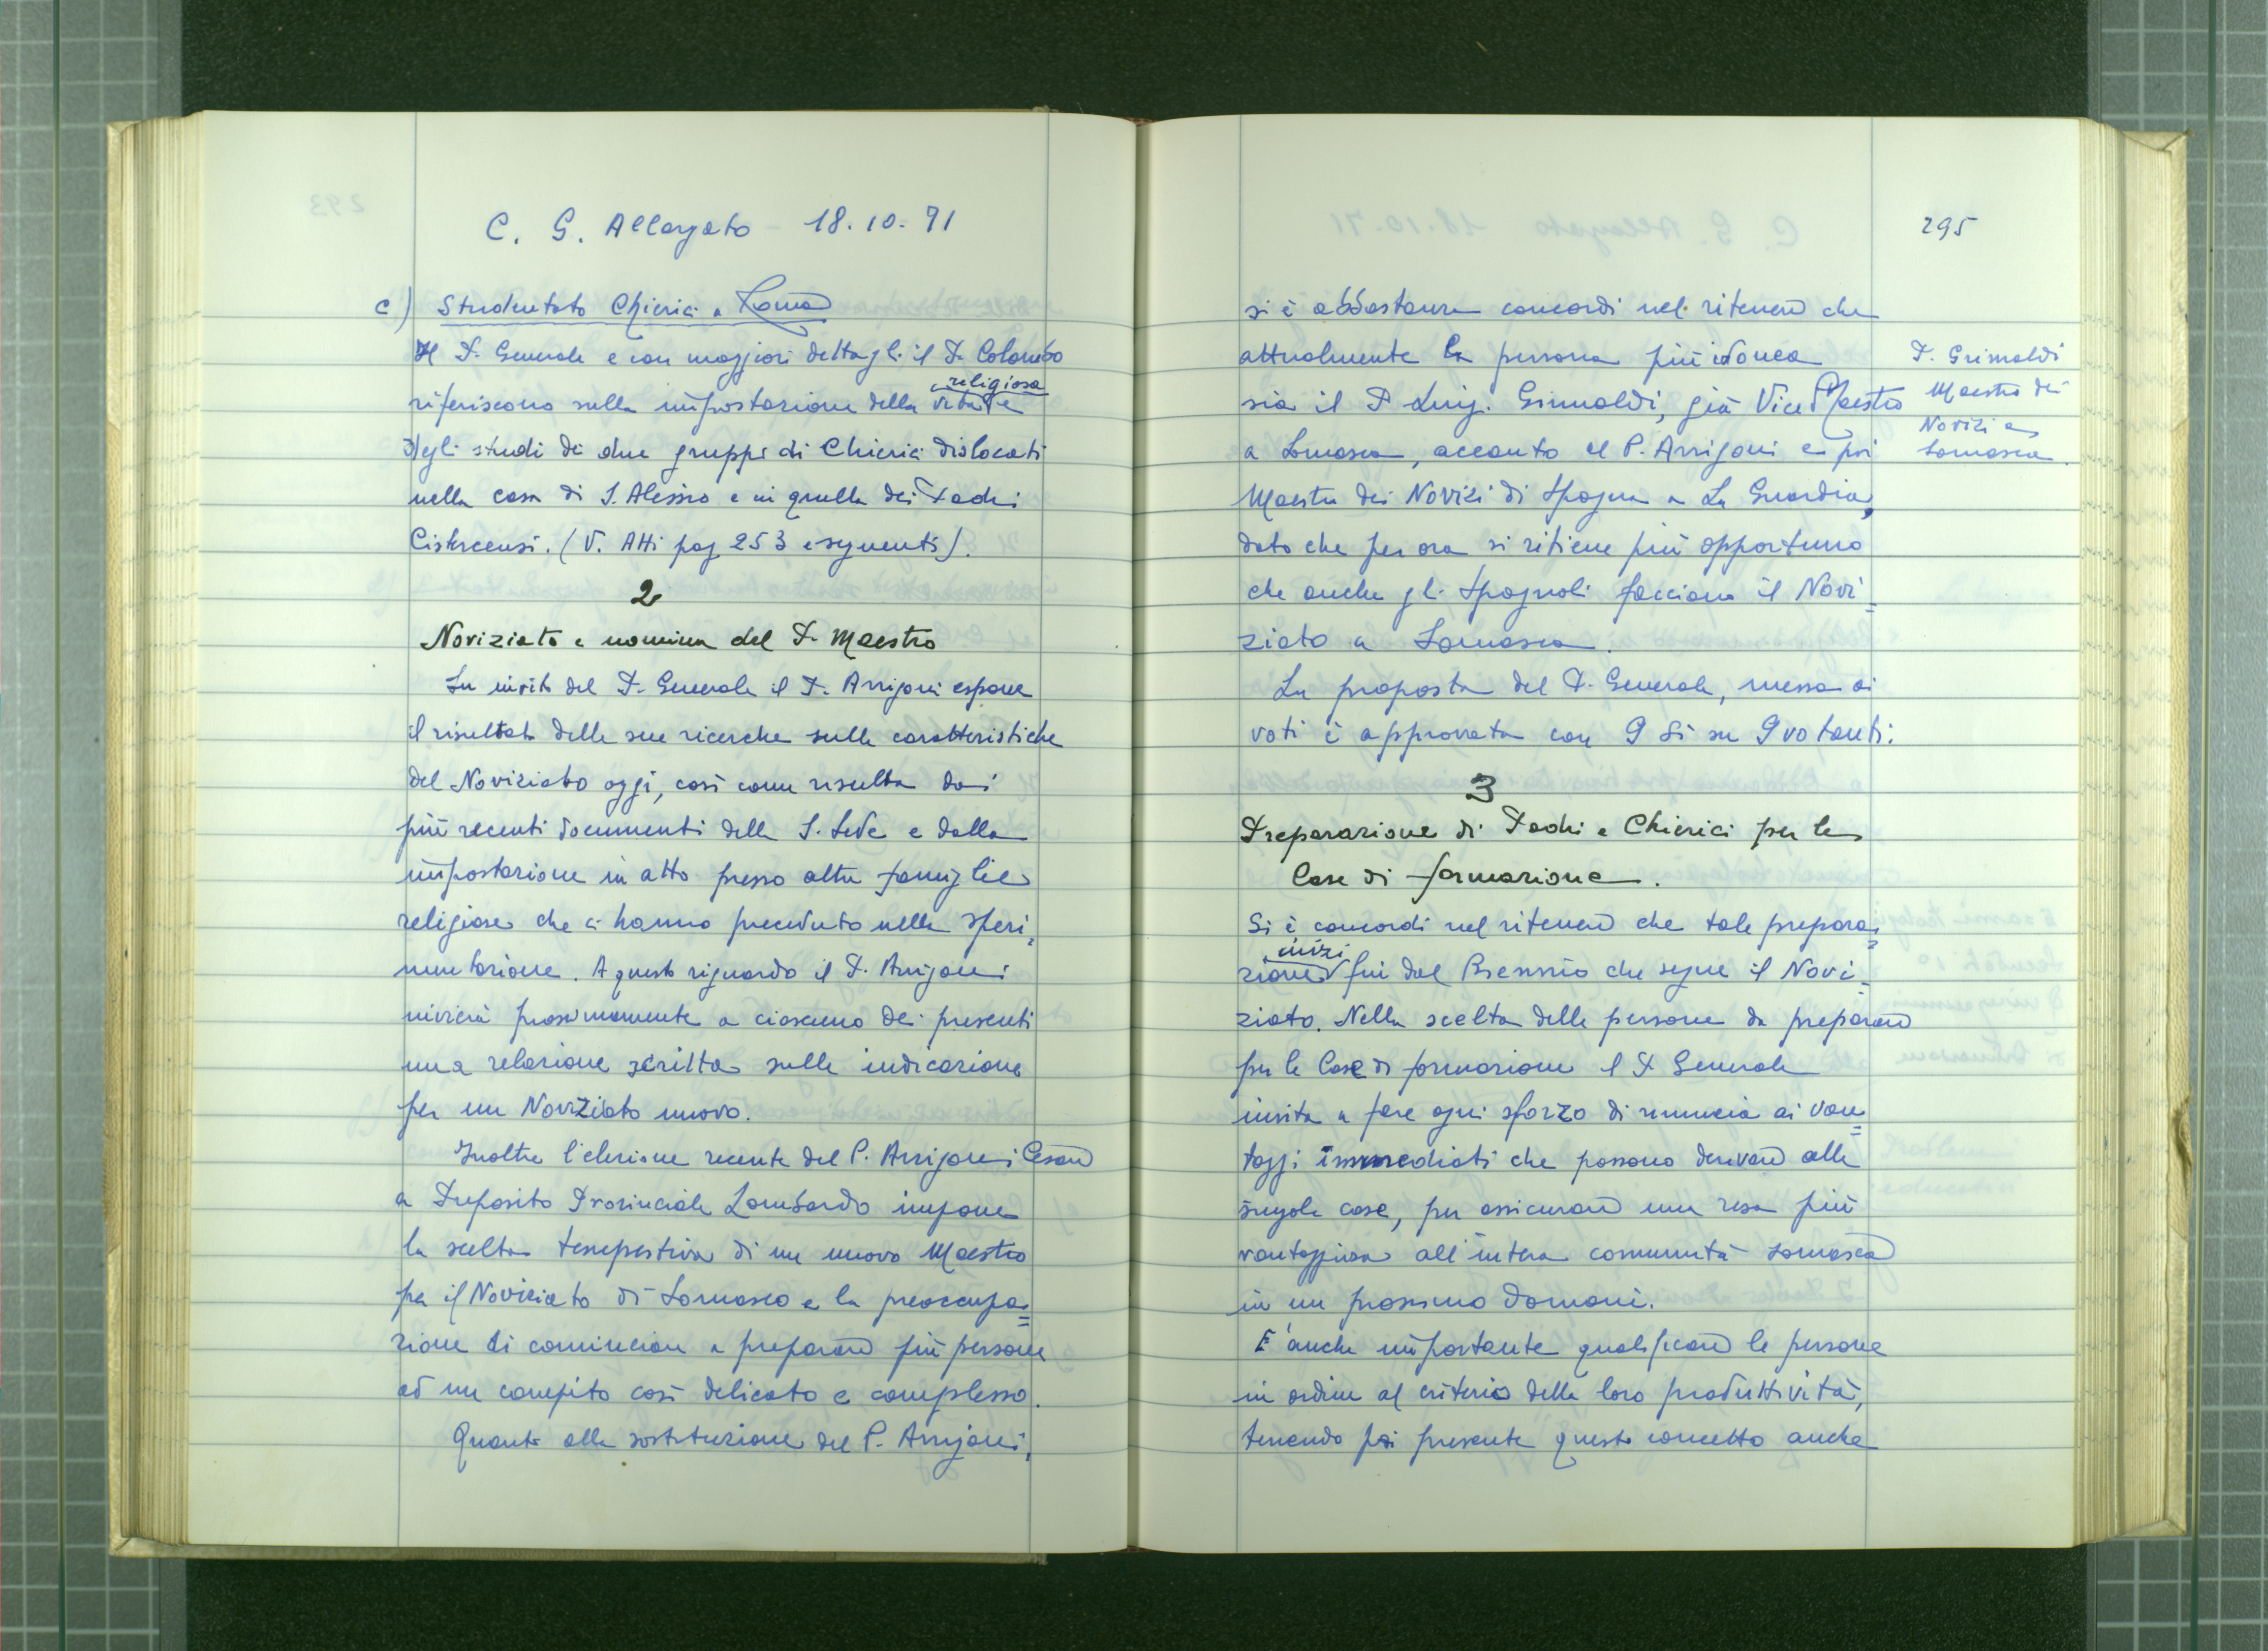 C. G. Allargato - 18.10.71
c) Studentato Chierici a Roma
Il P. Generale e con maggiori dettagli il P. Colombo
religiosa
riferiscono sulla impostazione della vita e
degli studi dei due gruppi di Chierici dislocati
nella casa di S. Alessio e in quella dei Padri
Cistercensi. (V. Atti pag 253 e seguenti).
2
Noviziato e nomina del P. Maestro
Su invito del P. Generale il P. Arrigoni espone
il risultato delle sue ricerche sulle caratteristiche
del Noviziato oggi, così come risulta dai
più recenti documenti della S. Sede e dalla
impostazione in atto presso altre famiglie
religiose che ci hanno preceduto nella speri=
mentazione. A questo riguardo il P. Arrigoni
invierà prossimamente a ciascuno dei presenti
una relazione scritta sulle indicazione
per un Noviziato nuovo.
Inoltre l'elezione recente del P. Arrigoni Cesare
a Preposito Provinciale Lombardo impone
la scelta tempestiva di un nuovo Maestro
per il Noviziato di Somasca e la preoccupa=
zione di cominciare a preparare più persone
ad un compito così delicato e complesso.
Quanto alla sostituzione del P. Arrigoni,
295
si è abbastanza concordi nel ritenere che
attualmente la persona più idonea
sia il P. Luigi Grimaldi, già Vice Maestro
a Somasca, accanto al P. Arrigoni e poi
Maestro dei Novizi di Spagna a La Guardia,
dato che per ora si ritiene più opportuno
che anche gli Spagnoli facciano il Novi=
ziato a Somasca.
La proposta del P. Generale, messa ai
voti è approvata con 9 Sì su 9 votanti.
P. Grimaldi
Maestro dei
Novizi a
Somasca.
3
Preparazione di Padri e Chierici per le
Case di formazione.
Si è concordi nel ritenere che tale prepara=
inizi
zione fin dal Biennio che segue il Novi=
ziato. Nella scelta delle persone da preparare
per le Case di formazione il P. Generale
invita a fare ogni sforzo di rinuncia ai van=
taggi immediati che possono derivare alle
singole case, per assicurare una resa più
vantaggiosa all'intera comunità somasca
in un prossimo domani.
E' anche importante qualificare le persone
in ordine al criterio della loro produttività,
tenendo poi presente questo concetto anche